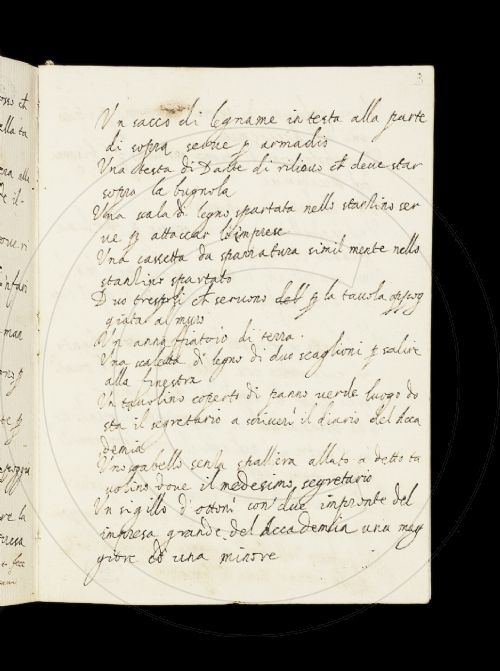 3
Un sacco di legname in testa alla parte
di sopra serue p armadio
Una testa di Dante di rilieuo ch deue star
sopra la bugnola
Una scala di legno spartata nello stanzino ser
ue p attaccar l imprese
Una cassetta da spazzatura simil mente nello
stanzino spartato
Duo trespoli ch seruono p la tauola appog
giata al muro
Un anna fiatoio di terra.
Una scaletta di legno di duo scaglioni p salire
alla finestra
Un tauolino coperto di panno uerde luogo do
sta il segretario a scriuere il diario del Acca
demia
Uno sgabello senza spalliera allato a detto ta
uolino doue il medesimo segretario
Un sigillo d'ottone con due impronte del
impresa grande del Accademia una mag
giore ed una minore